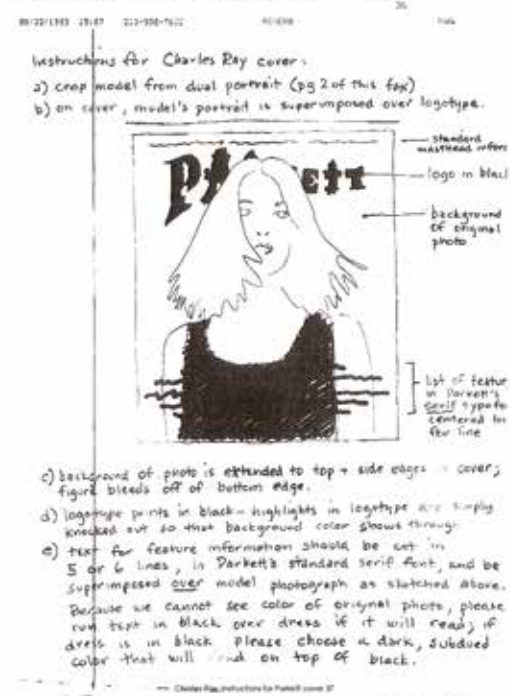 Instructions for Charles Ray cover:
a) crop model from dual portrait (pg 2 of this fax)
b) on cover, model's portrait is superimposed over logotype.
standard
masthead
logo in blac
PA ETT
background
of original
photo
list of featur
in Parkett's
serif
centered
line
c) background of photo is extended to top + side edges cover;
figure bleeds off of bottom edge.
d) logotype prints in black - highlights in logotype are simply
knocked out so that background color shows through.
e) text for feature information should be set in
5 or 6 lines, in Parkett's standard serif font, and be
superimposed over model photograph as sketched above.
Because we cannot see color of original photo, please
run text in black over dress if it will read; if
dress is in black please choose a dark, subdued
color that will on top of black.
Charles Ray, Instructions for Parkett cover 37